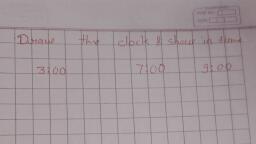 Draw the clock & show in time
3:00 7:00 9:00